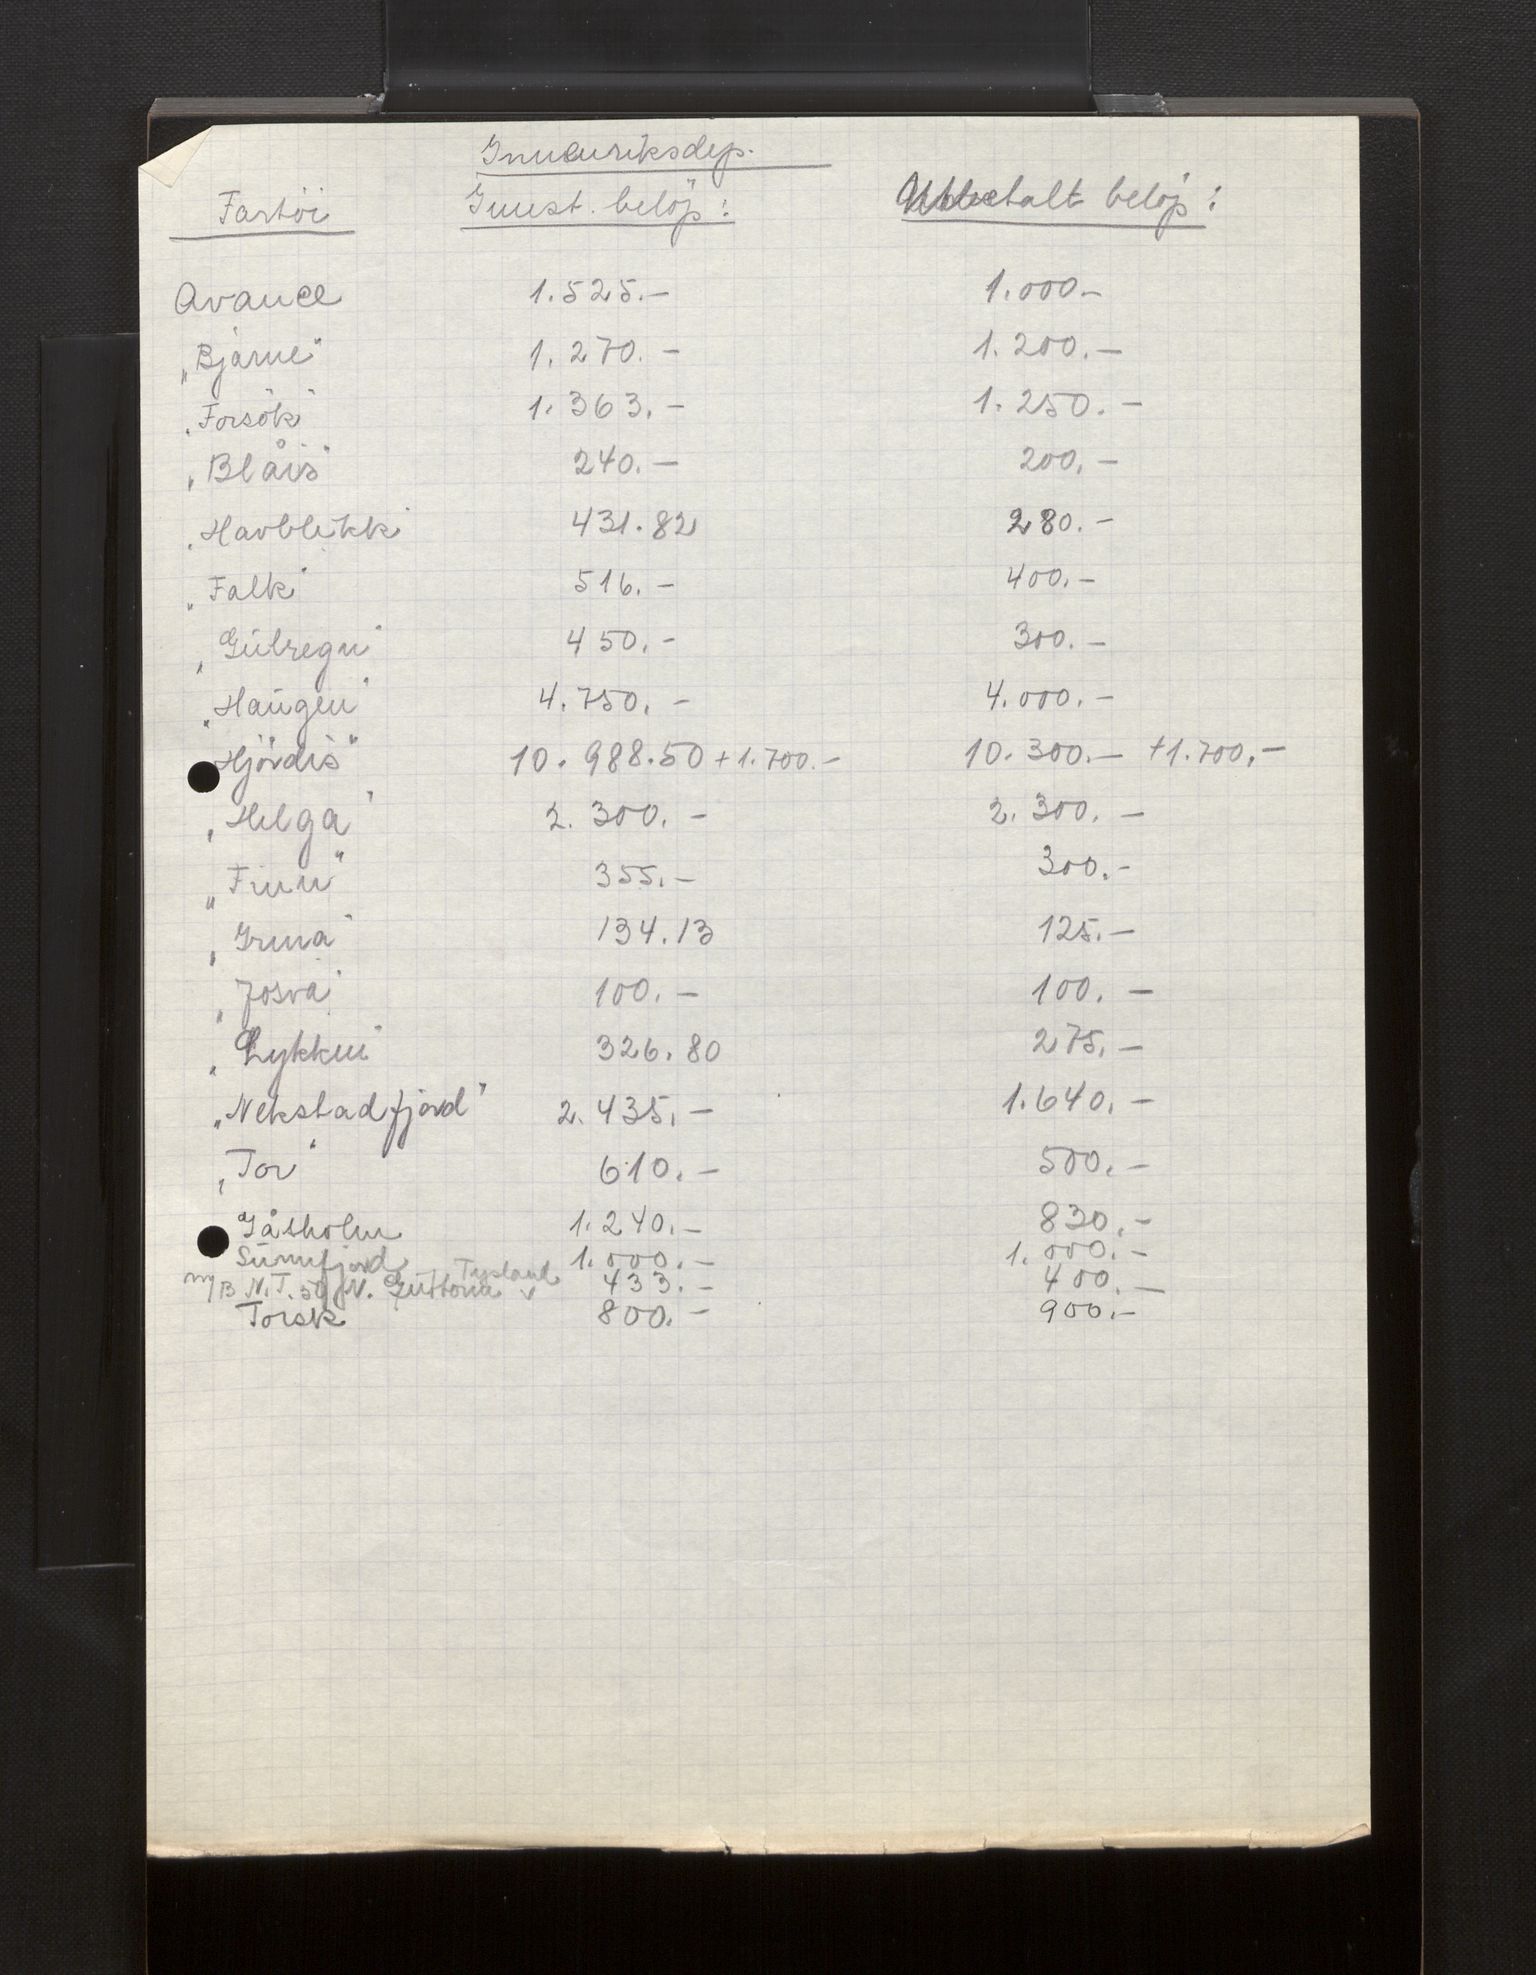 Innenriksdep.
Fartöi Innst. belöp: Utbetalt belöp:
Avance 1.525.- 1.000-
„Bjarne" 1.270.- 1.200.-
„Forsök" 1.363.- 1.250.-
„Blåis" 240.- 200.-
„Havblikk" 431.82 280.-
„Falk" 516.- 400.-
„Gullregn" 450.- 300.-
„Haugen" 4.750.- 4.000.-
„Hjördis" 10.988.50+1.700.- 10.300.- +1.700.-
„Helga" 2.300.- 2.300.-
„Finn" 355.- 300.-
„Irma" 134.13 125.-
„Josva" 100.- 100.-
„Lykken" 326.80 275.-
„Nekstadfjord" 2.435.- 1.640.-
„Tor" 610.- 500.-
Gåsholm 1.240.- 830.-
Sunnfjord 1.000.- 1.000.-
m/B N.T. 50 N. 433.- 400.-
Torsk 800.- 900.-